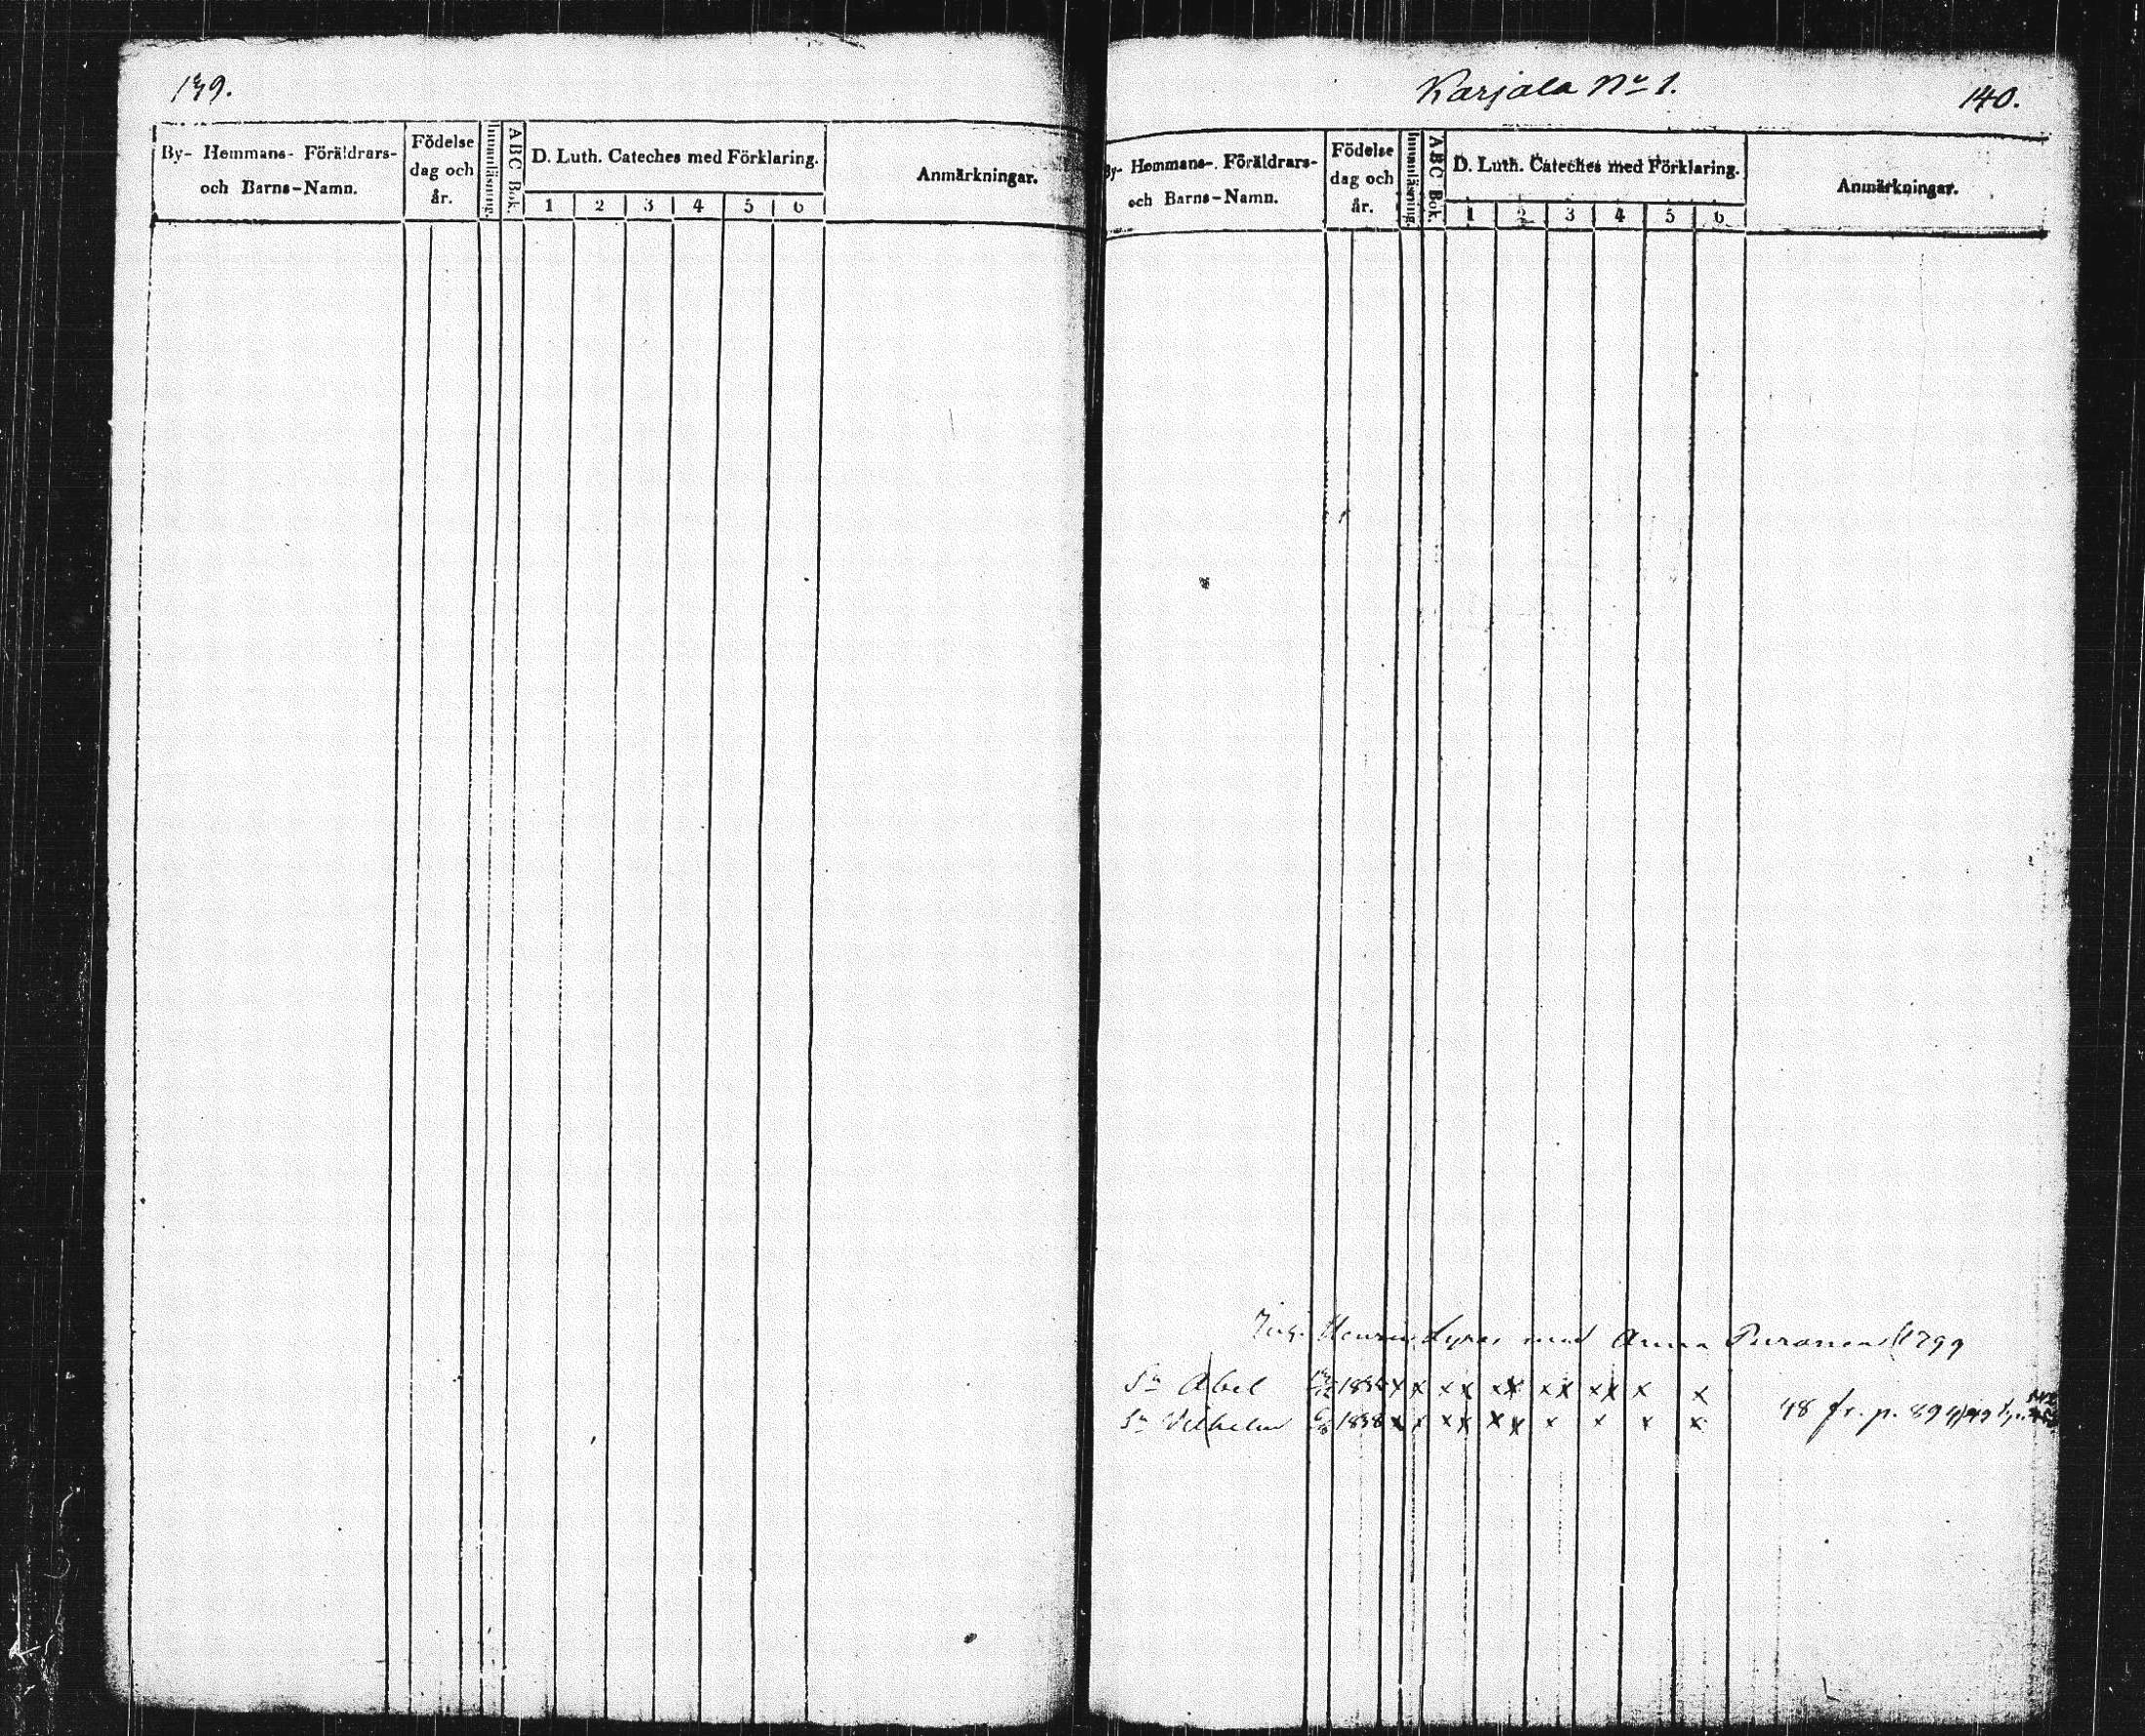 139.
By- Hemmans- Föräldrars- och Barns-Namn.
Födelse dag och år.
Innanläsning.
ABC Bok.
D. Luth. Cateches med Förklaring.
1 2 3 4 5 6
Anmärkningar.
Karjala No 1.
140.
By- Hemmans- Föräldrars- och Barns-Namn.
Födelse dag och år.
Innanläsning.
ABC Bok.
D. Luth. Cateches med Förklaring.
1 2 3 4 5 6
Anmärkningar.
med Anna Puronen 1799
Sn Abel x x x x x x x x x x x x
Sn Vilhelm 1838 x x x x x x x x x x
48 fr. p. 894